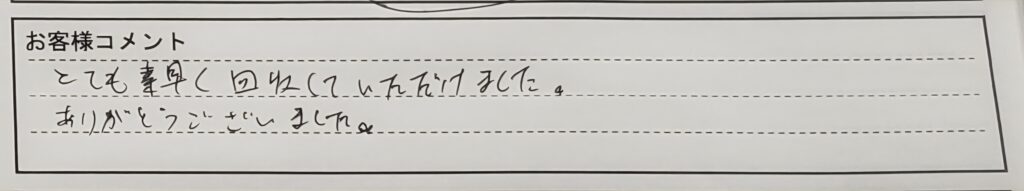 お客様コメント
とても素早く回収していただけました。
ありがとうございました。